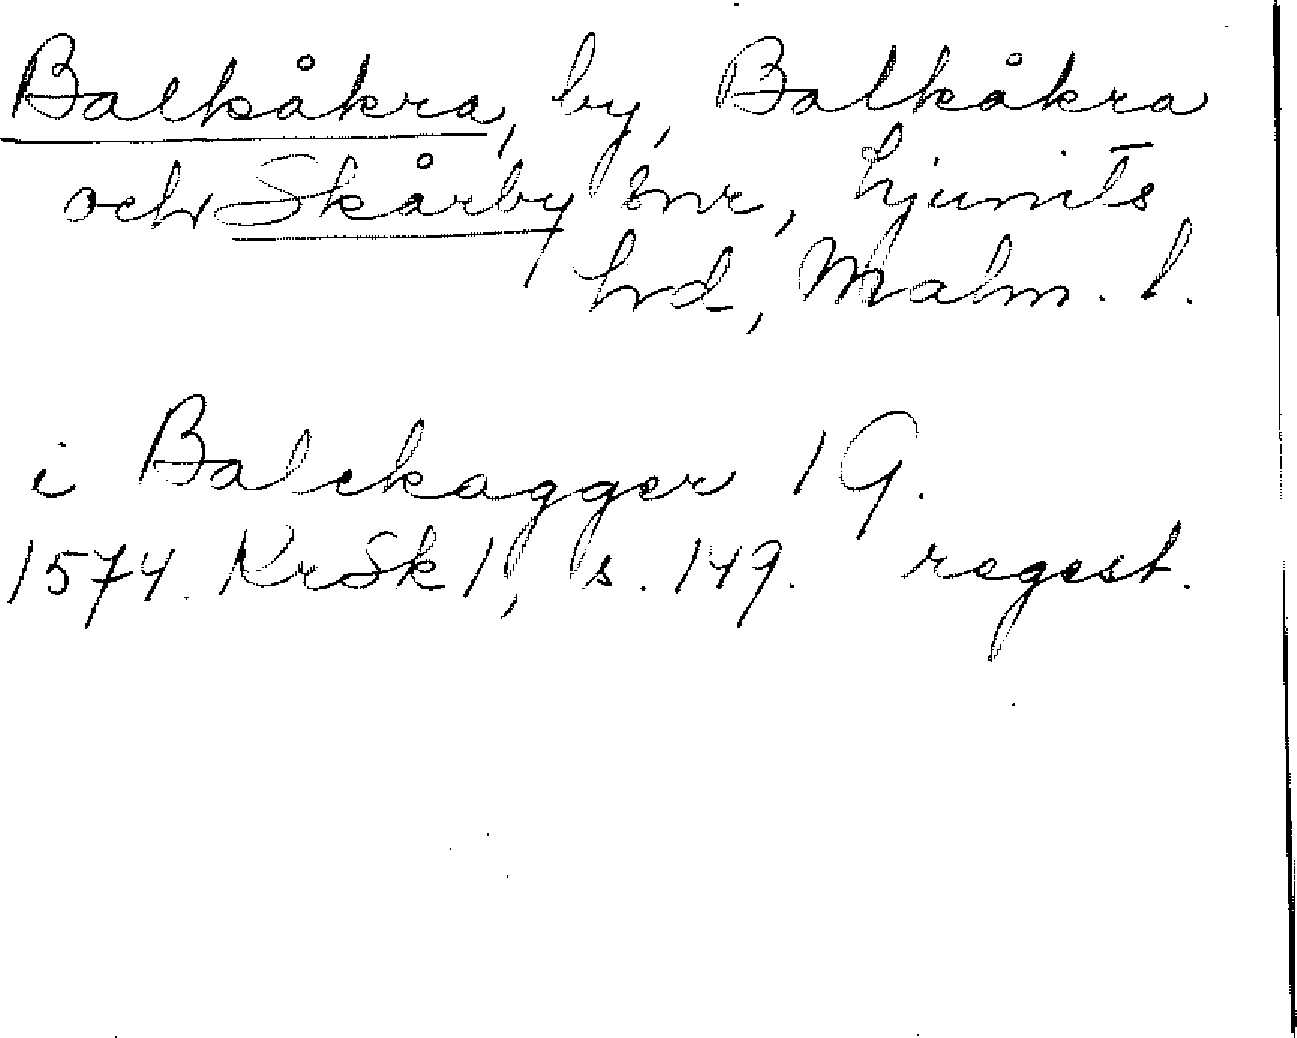 Balkåkra, by, Balkåkra
och Skårby snr, Ljunits
hrd, Malm. l.
i Balckagger 1 G.
1574. KrSk 1, s. 149. regest.